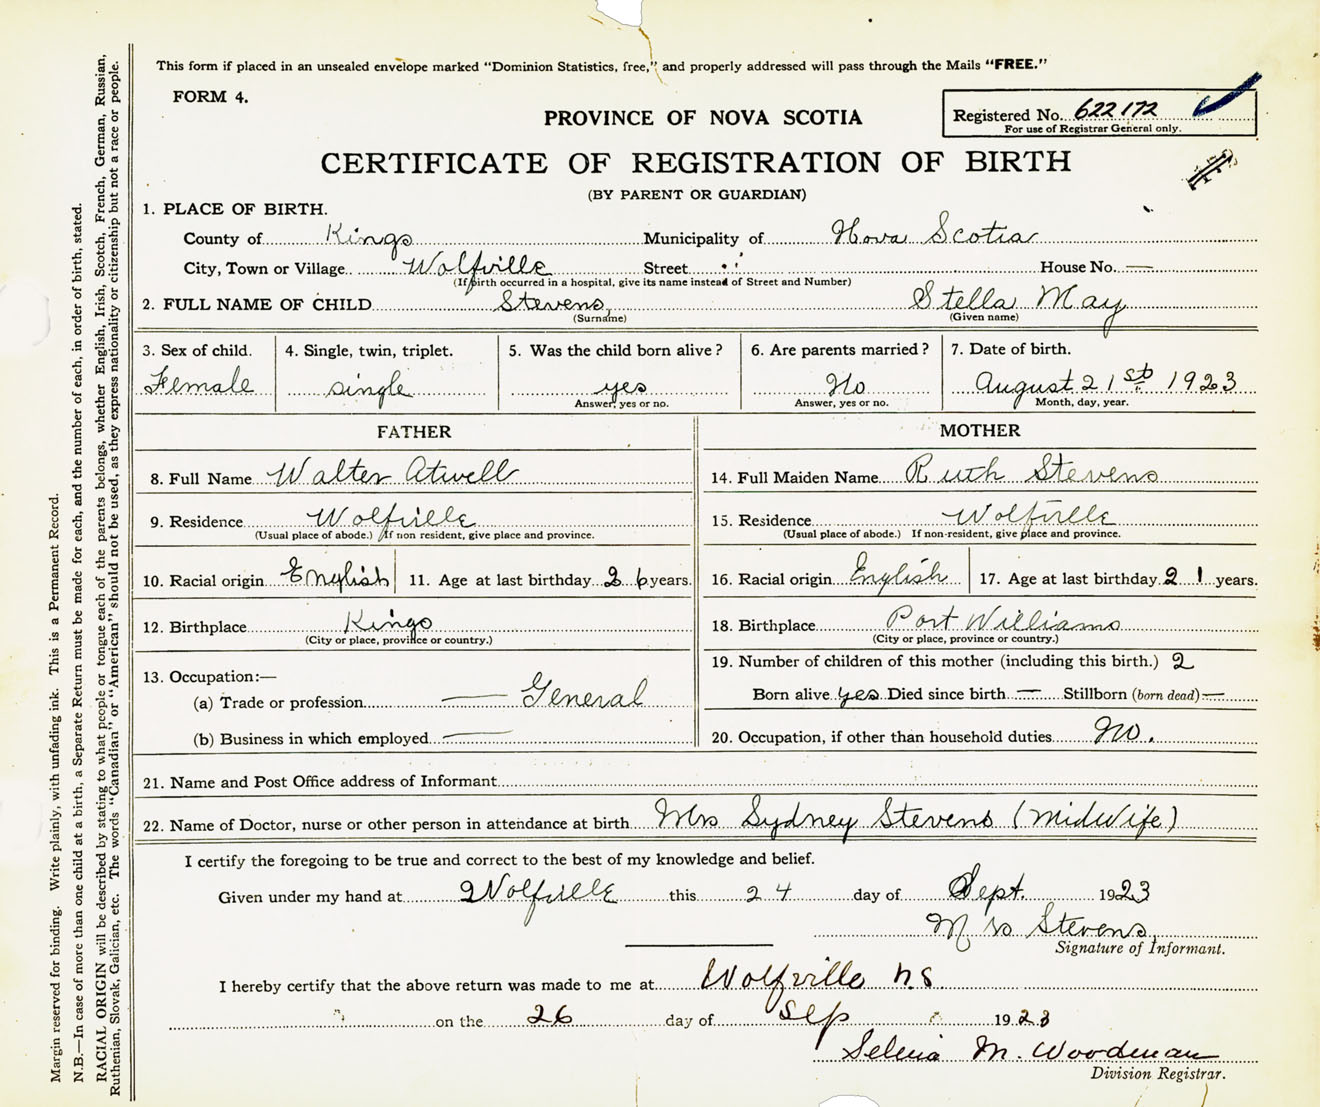 This form if placed in an unsealed envelope marked "Dominion Statistics, free," and properly addressed will pass through the Mails "FREE."
FORM 4.
PROVINCE OF NOVA SCOTIA
Registered No. 622172
For use of Registrar General only.
CERTIFICATE OF REGISTRATION OF BIRTH
(BY PARENT OR GUARDIAN)
1. PLACE OF BIRTH.
County of Kings Municipality of Nova Scotia
City, Town or Village Wolfville Street " House No. —
(If birth occurred in a hospital, give its name instead of Street and Number)
2. FULL NAME OF CHILD Stevens, Stella May
(Surname) (Given name)
3. Sex of child. 4. Single, twin, triplet. 5. Was the child born alive? 6. Are parents married? 7. Date of birth.
Female single yes No August 21st 1923
Answer, yes or no. Answer, yes or no. Month, day, year.
FATHER MOTHER
8. Full Name Walter Atwell 14. Full Maiden Name Ruth Stevens
9. Residence Wolfville 15. Residence Wolfville
(Usual place of abode.) If non resident, give place and province. (Usual place of abode.) If non-resident, give place and province.
10. Racial origin English 11. Age at last birthday 26 years. 16. Racial origin English 17. Age at last birthday 21 years.
12. Birthplace Kings 18. Birthplace Port Williams
(City or place, province or country.) (City or place, province or country.)
13. Occupation:— 19. Number of children of this mother (including this birth.) 2
(a) Trade or profession — General Born alive yes Died since birth — Stillborn (born dead) —
(b) Business in which employed — 20. Occupation, if other than household duties No.
21. Name and Post Office address of Informant
22. Name of Doctor, nurse or other person in attendance at birth Mrs Sydney Stevens (midwife)
I certify the foregoing to be true and correct to the best of my knowledge and belief.
Given under my hand at Wolfville this 24 day of Sept. 1923
Mrs Stevens
Signature of Informant.
I hereby certify that the above return was made to me at Wolfville N.S
on the 26 day of Sep 1923
M. Woodman
Division Registrar.
Margin reserved for binding. Write plainly, with unfading ink. This is a Permanent Record.
N.B.—In case of more than one child at a birth, a Separate Return must be made for each, and the number of each, in order of birth, stated.
RACIAL ORIGIN will be described by stating to what people or tongue each of the parents belongs, whether English, Irish, Scotch, French, German, Russian,
Ruthenian, Slovak, Galician, etc. The words "Canadian" or "American" should not be used, as they express nationality or citizenship but not a race or people.